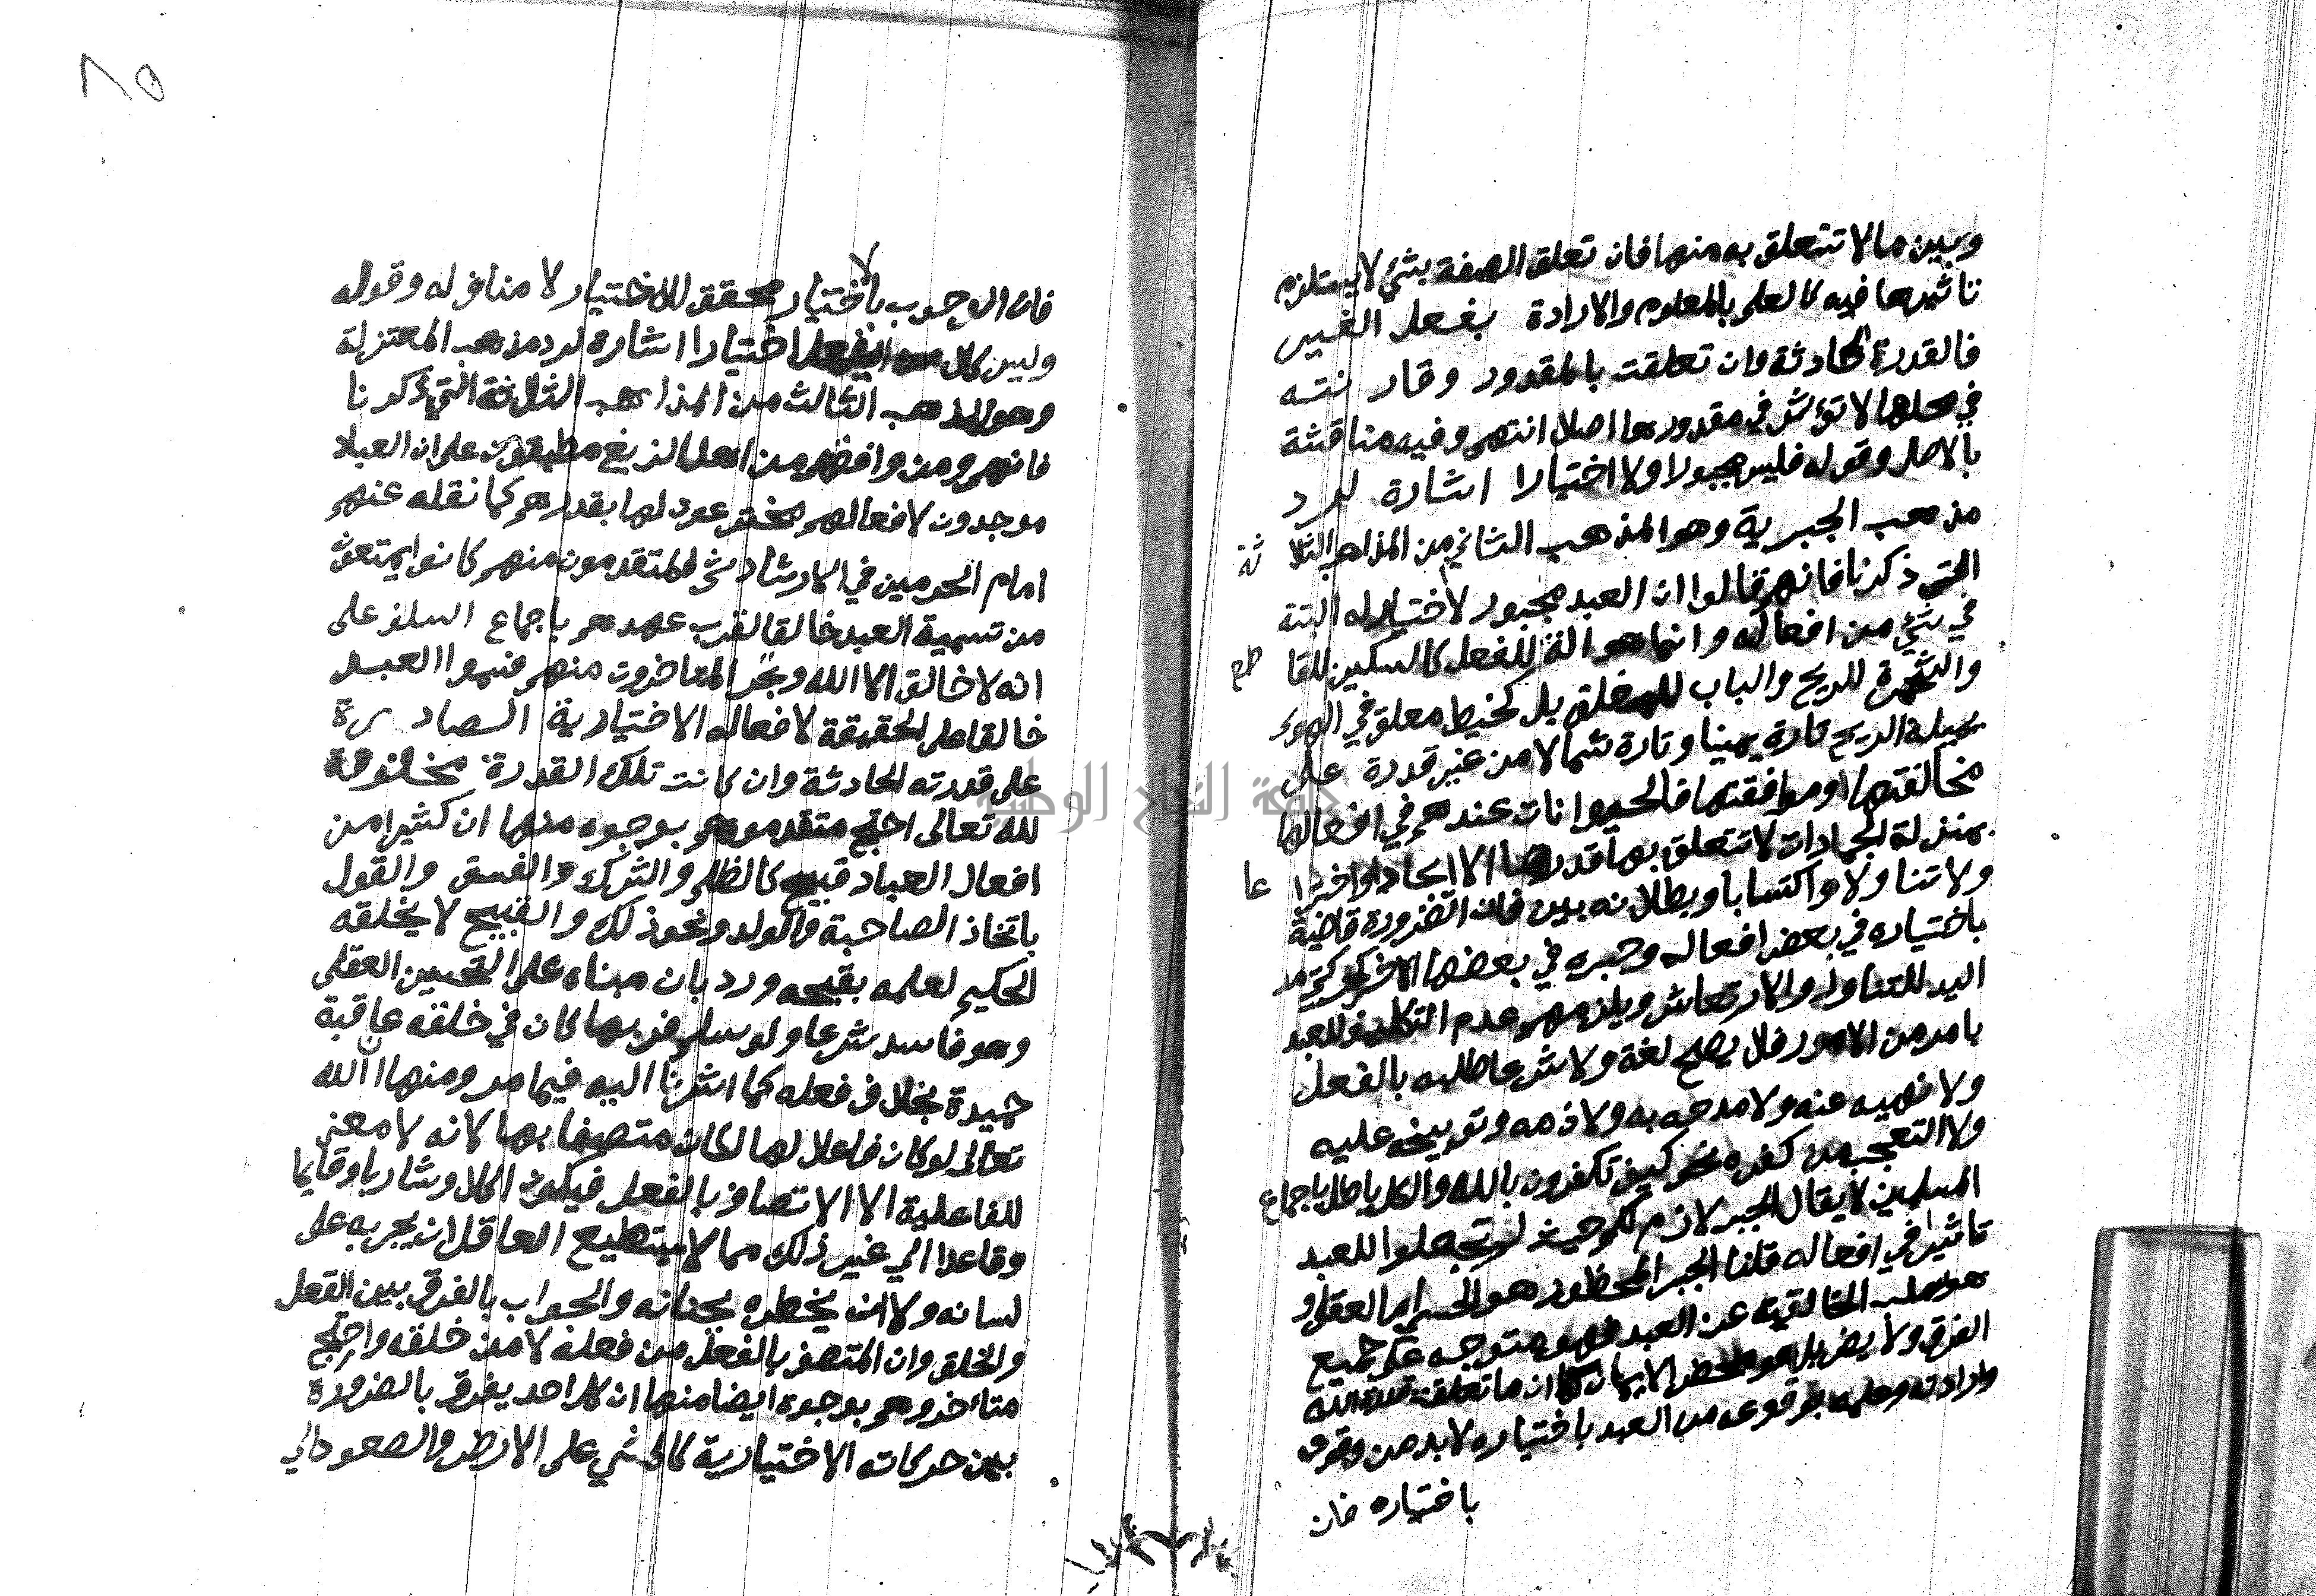 وبين ما لا تتعلق به منها فان تعلق الصفة بشئ لا يستلزم
تاثيرها فيه كالعلم بالمعلوم والارادة بفعل الغير
فالقدرة الحادثة وان تعلقت بالمقدور وقارنته
في محلها لا تؤثر في مقدورها اصلا انتهى وفيه مناقشة
بالاصل وقوله فليس مجبورا ولا اختيارا اشارة لرد
مذهب الجبرية وهو المذهب الثاني من المذاهب الثلاثة
التي ذكرنا فانهم قالوا ان العبد مجبور لا اختيار له البتة
في شئ من افعاله وانما هو الة للفعل كالسكين للقاطع
والشجرة للريح والباب للمغلق بل كخيط معلق في الهوى
يميله الريح تارة يمينا وتارة شمالا من غير قدرة على
مخالفتها او موافقتها فالحيوانات عندهم في افعالها
بمنزلة الجمادات لا تتعلق بها قدرها لا ايجادا واختراعا
ولا تناولا واكتسابا وبطلانه بين فان الضرورة قاضية
باختياره في بعض افعاله وجبره في بعضها الاخر كحركتي مد
اليد للتناول والارتعاش ويلزمهم عدم التكليف للعبد
بامر من الامور فلا يصح لغة ولا شرعا طلبه بالفعل
ولا نهيه عنه ولا مدحه به ولا ذمه وتوبيخه عليه
ولا التعجب من كفره نحو كيف تكفرون بالله والكل باطل باجماع
المسلمين لا يقال الجبر لازم لكم حيث لم تجعلوا للعبد
تاثيرا في افعاله قلنا الجبر المحظور هو الحسي اما العقلي و
هو سلب الخالقية عن العبد فهو متوجه على جميع
الفرق ولا يضر بل هو محض الايمان كما ان ما تعلقت قدرة الله
وارادته وعلمه بوقوعه من العبد باختياره لا بد من وقوعه
باختياره فان
٨٥
فان الوجوب بالاختيار محقق للاختيار لا مناف له وقوله
وليس كلا يفعل اختيارا اشارة لرد مذهب المعتزلة
وهو المذهب الثالث من المذاهب الثلاثة التي ذكرنا
فانهم ومن وافقهم من اهل الزيغ مطبقون على ان العباد
موجدون لافعالهم مخترعون لها بقدرهم كما نقله عنهم
امام الحرمين في الارشاد ثم المتقدمون منهم كانوا يمتنعون
من تسمية العبد خالقا لقرب عهدهم باجماع السلف على
انه لا خالق الا الله وتجرأ المتاخرون منهم فسموا العبد
خالقا على الحقيقة لافعاله الاختيارية الصادرة
على قدرته الحادثة وان كانت تلك القدرة مخلوقة
لله تعالى احتج متقدموهم بوجوه منها ان كثيرا من
افعال العباد قبيح كالظلم والشرك والفسق والقول
باتخاذ الصاحبة والولد ونحو ذلك والقبيح لا يخلقه
الحكيم لعلمه بقبحه ورد بان مبناه على التحسين العقلي
وهو فاسد شرعا ولو سلم فربما كان في خلقه عاقبة
حميدة بخلاف فعله كما اشرنا اليه فيما مر ومنها ان الله
تعالى لو كان فاعلا لها لكان متصفا بها لانه لا معنى
للفاعلية الا الاتصاف بالفعل فيكون اكلا وشاربا وقايما
وقاعدا الي غير ذلك مما لا يستطيع العاقل ان يجريه على
لسانه ولا ان يخطره بجنانه والجواب بالفرق بين الفعل
والخلق وان المتصف بالفعل من فعله لا من خلقه واحتج
متأخروهم بوجوه ايضا منها ان كل احد يفرق بالضرورة
بين حركاته الاختيارية كالمشي على الارض والصعود الي
جامعة النجاح الوطنية